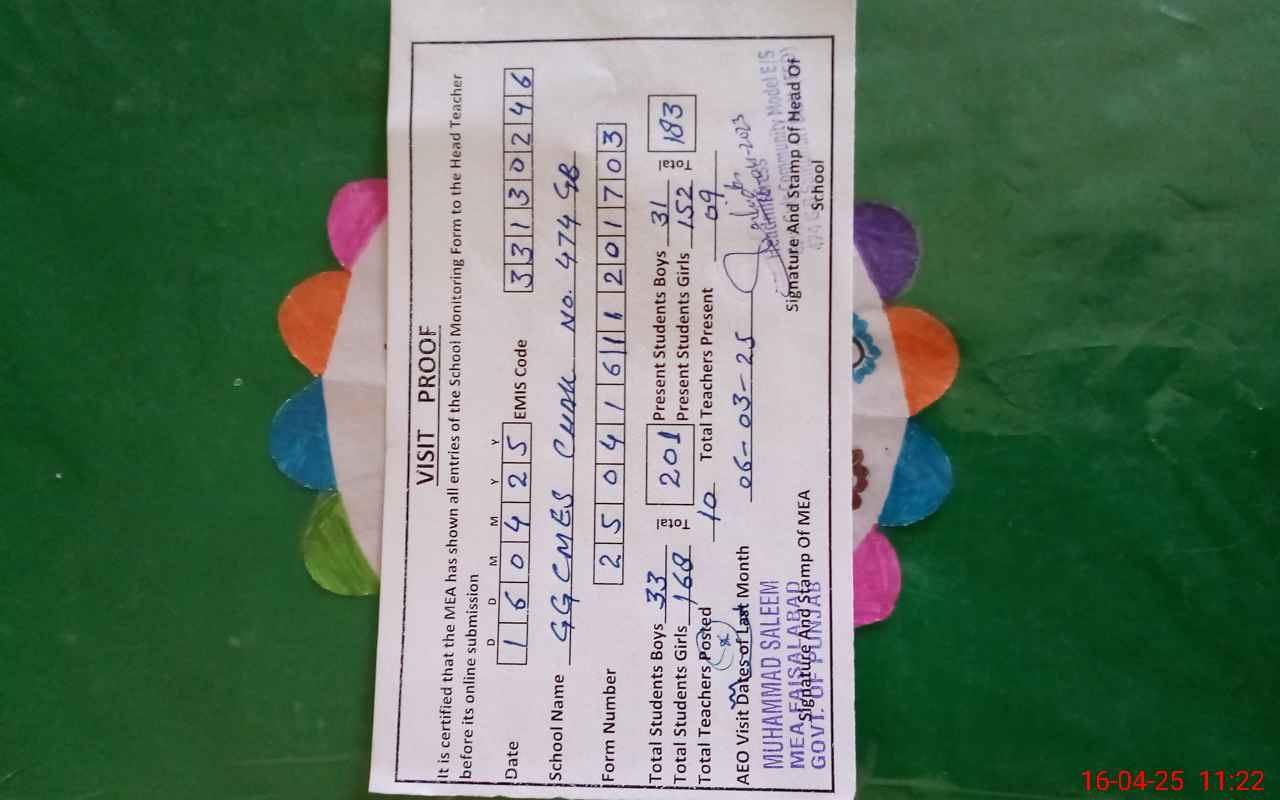 VISIT PROOF
It is certified that the MEA has shown all entries of the School Monitoring Form to the Head Teacher
before its online submission
D D M M Y Y
Date 1 6 0 4 2 5 EMIS Code 3 3 1 3 0 2 4 6
School Name GGCMES CHAK NO. 474 GB
Form Number 2 5 0 4 1 6 1 1 6 2 0 1 7 0 3
Total Students Boys 33 Total 201 Present Students Boys 31 Total 183
Total Students Girls 168 Present Students Girls 152
Total Teachers Posted 10 Total Teachers Present 09
AEO Visit Dates of Last Month 06-03-25
MUHAMMAD SALEEM
MEA FAISALABAD
GOVT. OF PUNJAB
Signature And Stamp Of MEA
Community Model E/S
474 G.B
Signature And Stamp Of Head Of
School
16-04-25 11:22